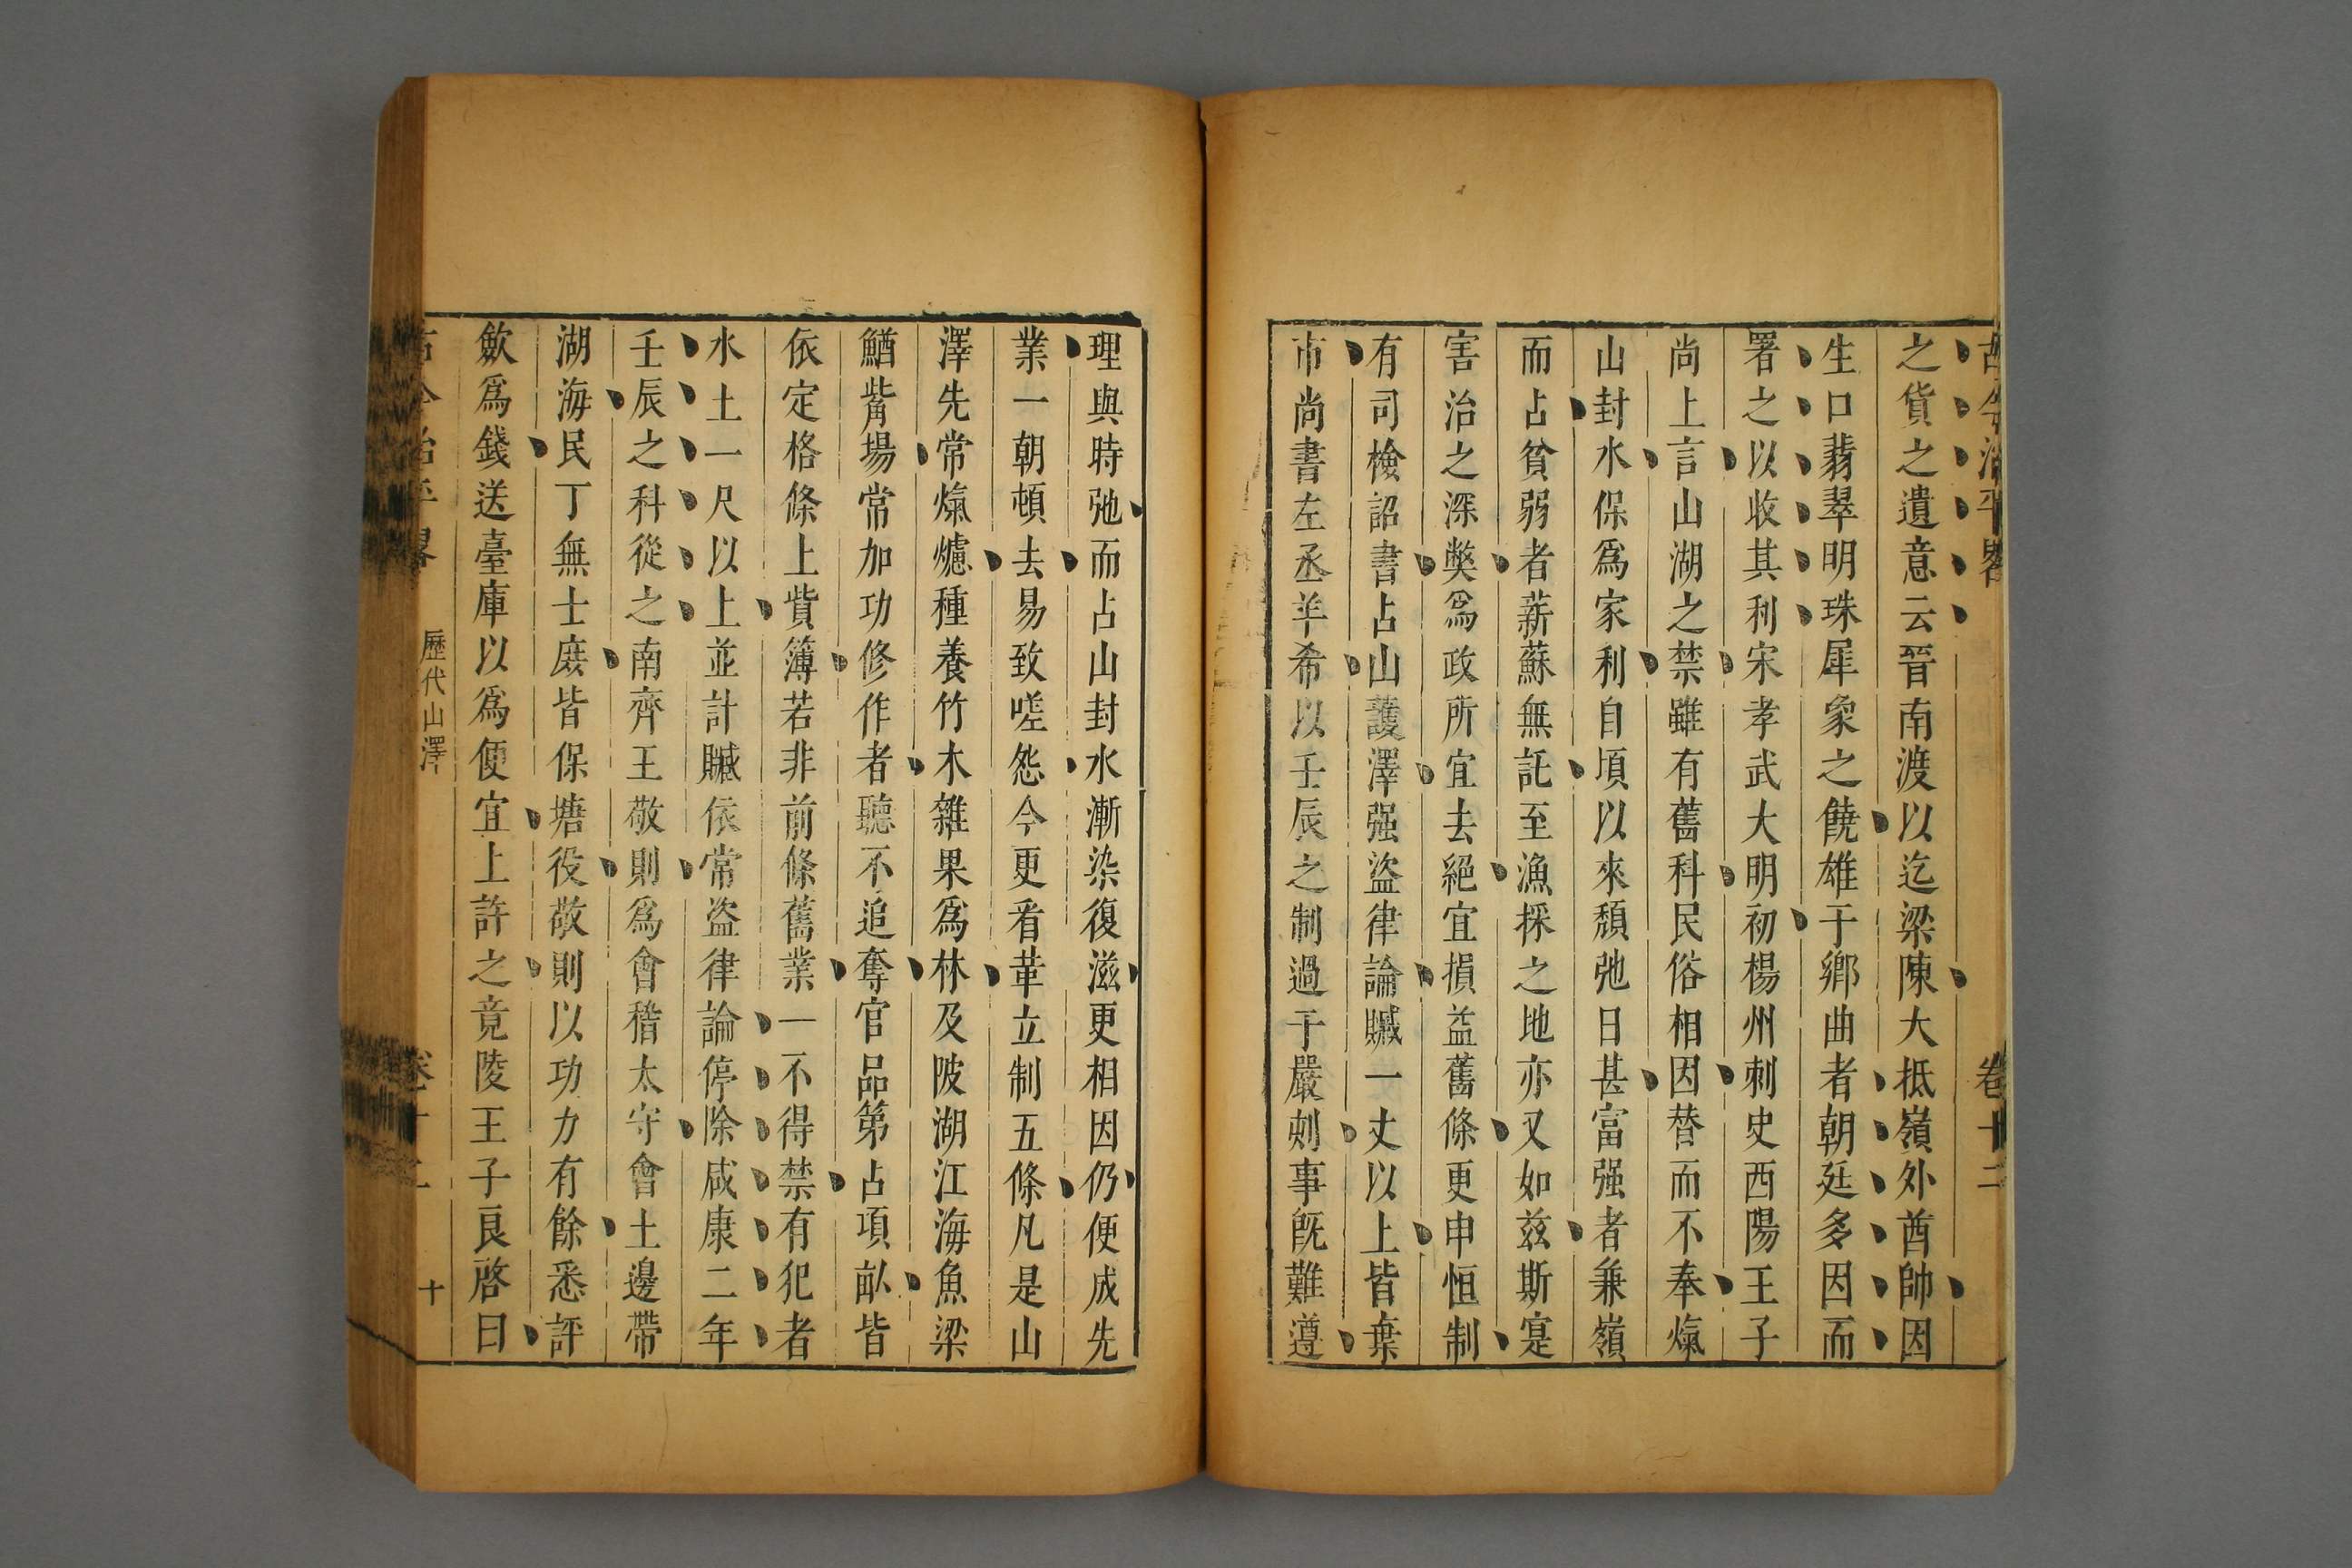 古今治平畧　卷十二
之貨之遺意云晉南渡以迄梁陳大抵嶺外酋帥因
生口翡翠明珠犀象之饒雄于鄉曲者朝廷多因而
署之以收其利宋孝武大明初楊州刺史西陽王子
尚上言山湖之禁雖有舊科民俗相因替而不奉爊
山封水保爲家利自頃以來頹弛日甚富强者兼嶺
而占貧弱者薪蘇無託至漁採之地亦又如兹斯寔
害治之深弊爲政所宜去絕宜損益舊條更申恒制
有司檢詔書占山護澤强盜律論贓一丈以上皆棄
市尚書左丞羊希以壬辰之制過于嚴刻事旣難遵
理與時弛而占山封水漸染復滋更相因仍便成先
業一朝頓去易致嗟怨今更看革立制五條凡是山
澤先常爊爈種養竹木雜果爲林及陂湖江海魚梁
鰌鮆場常加功修作者聽不追奪官品第占項畝皆
依定格條上貲簿若非前條舊業一不得禁有犯者
水土一尺以上並計贓依常盜律論停除咸康二年
壬辰之科從之南齊王敬則爲會稽太守會土邊帶
湖海民丁無士庶皆保塘役敬則以功力有餘悉評
歛爲錢送臺庫以爲便宜上許之竟陵王子良啓曰
古今治平畧　歷代山澤　卷十二　十